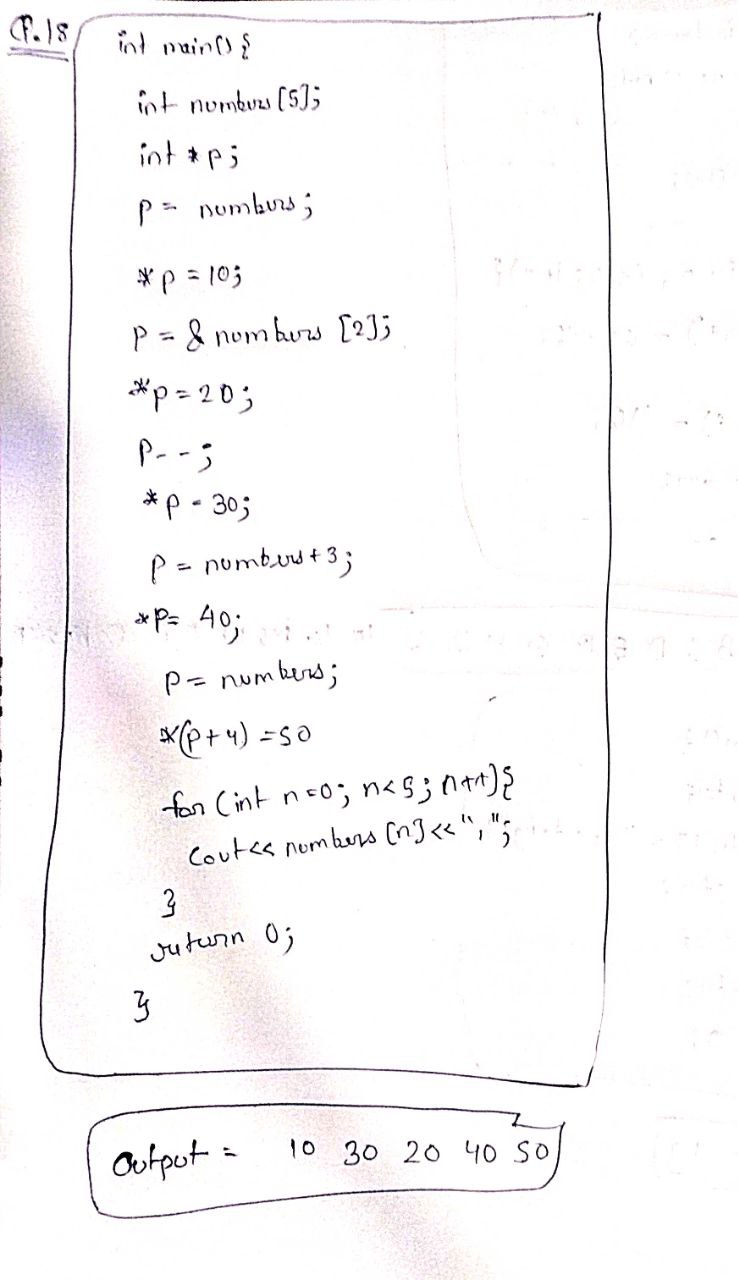 P.18
int main() {
int numbers [5];
int * p;
p = numbers;
*p = 10;
p = & numbers [2];
*p = 20;
p--;
*p = 30;
p = numbers + 3;
*p = 40;
p = numbers;
*(p+4) = 50
for (int n=0; n<5; n++) {
cout << numbers [n] << ",";
}
return 0;
}
output = 10 30 20 40 50